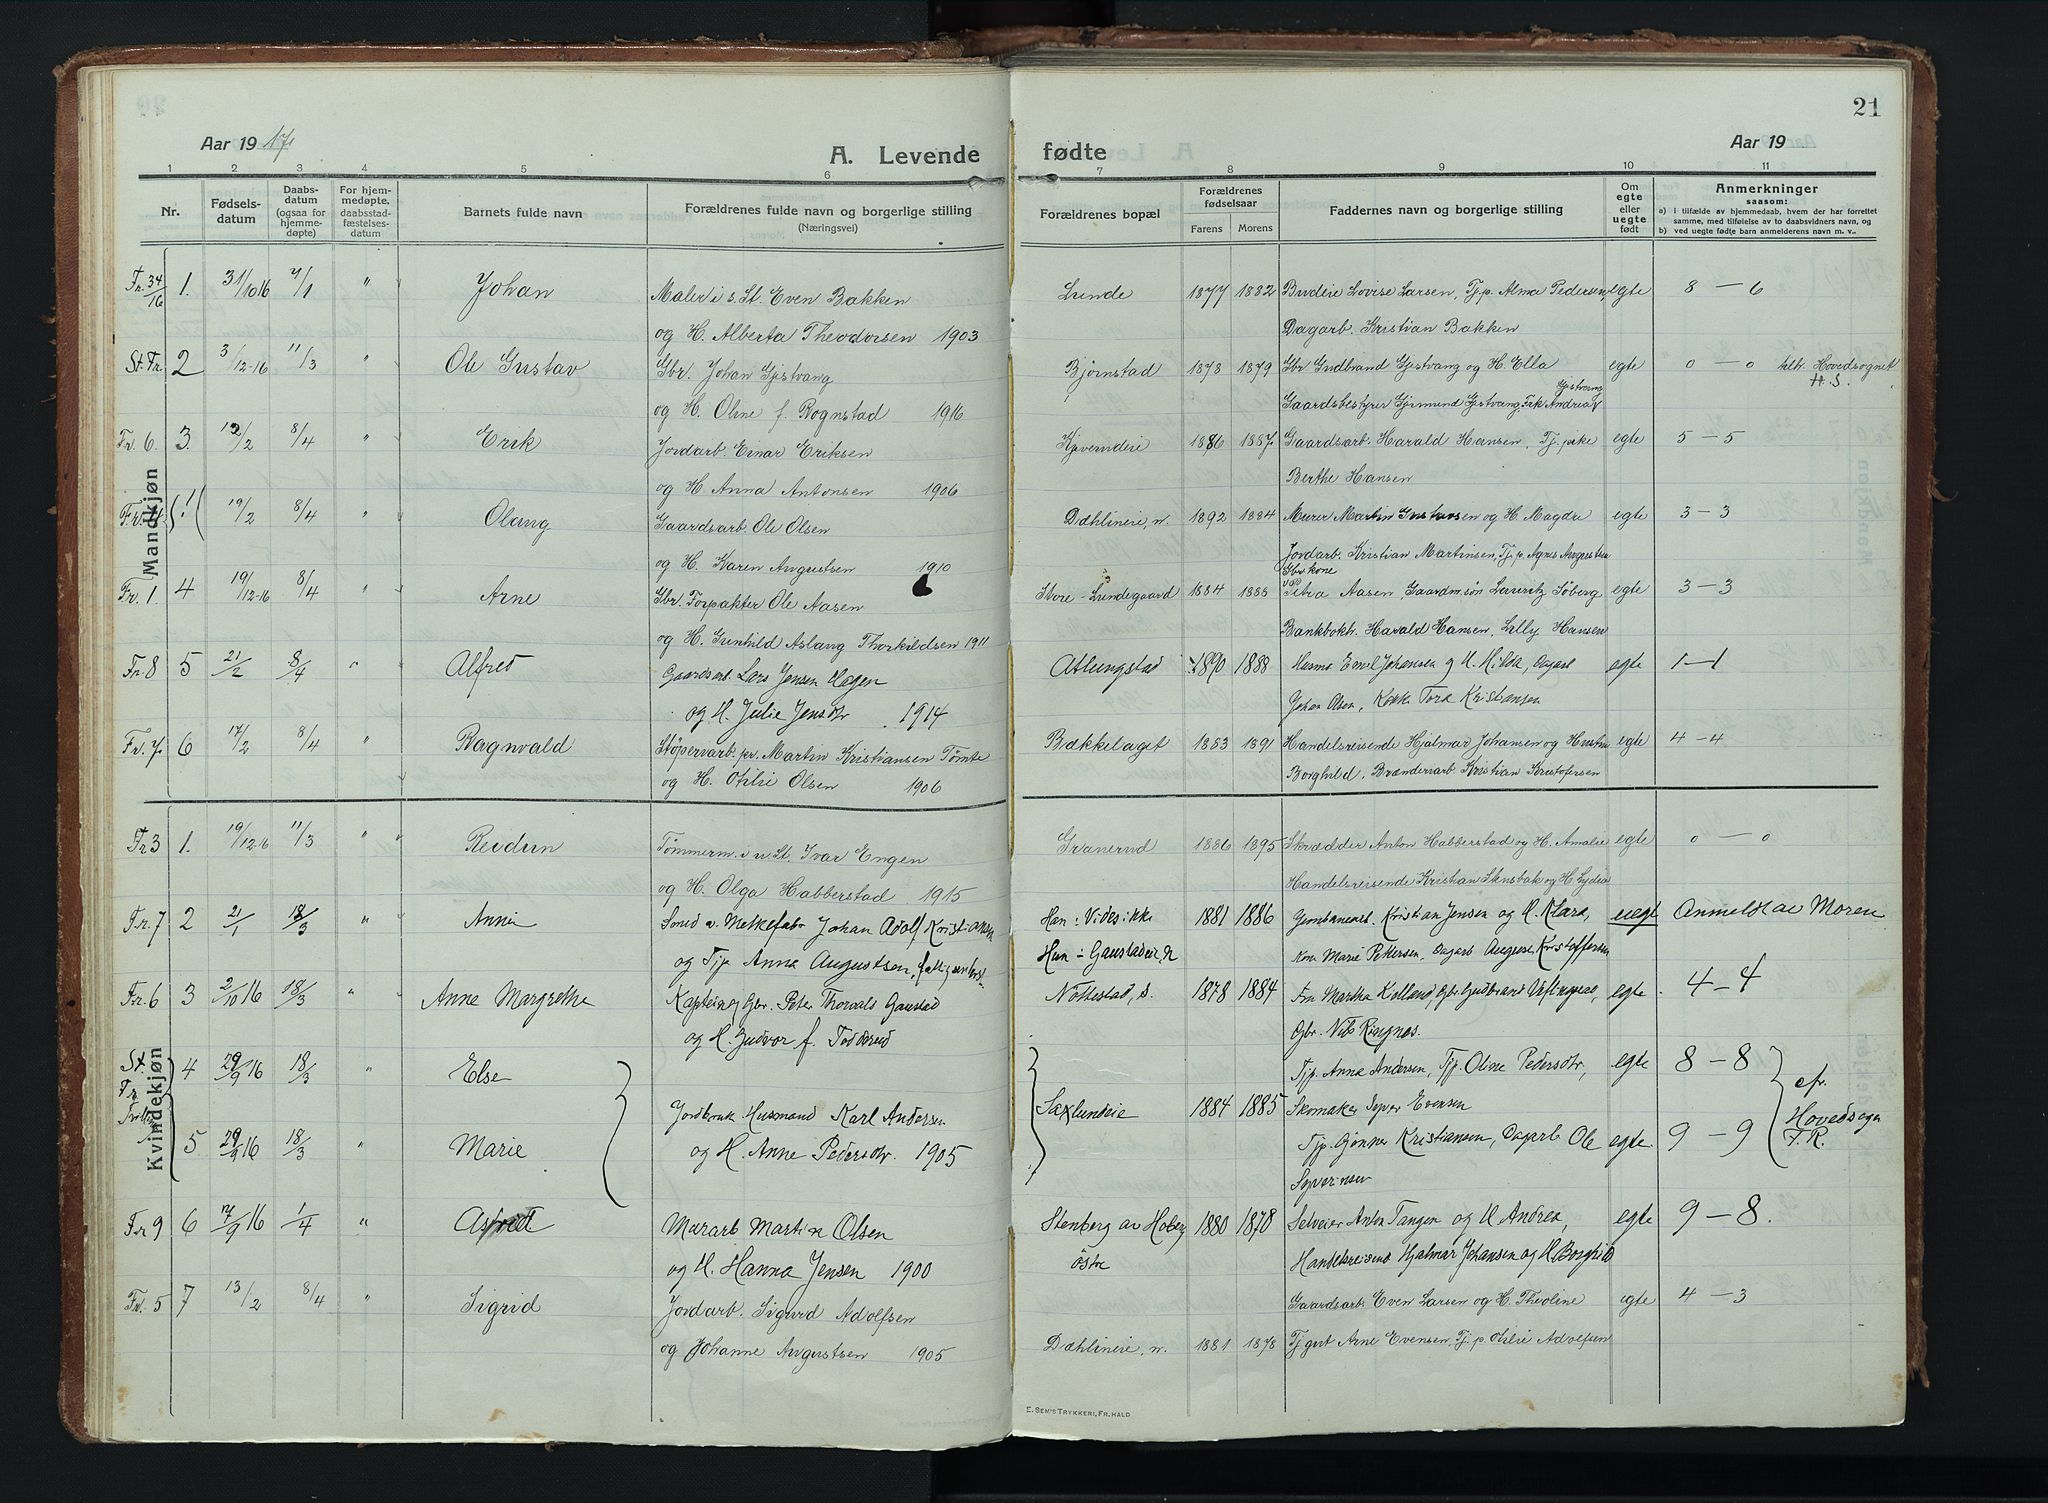 21
Aar 19 17
A. Levende fødte
Aar 19
1 2 3 4 5 6 7 8 9 10 11
Nr.
Fødsels-
datum
Daabs-
datum
(ogsaa for
hjemme-
døpte)
For hjem-
medøpte,
daabsstad-
fæstelses-
datum
Barnets fulde navn
Forældrenes fulde navn og borgerlige stilling
(Næringsvei)
Forældrenes bopæl
Forældrenes
fødselsaar
Farens Morens
Faddernes navn og borgerlige stilling
Om
egte
eller
uegte
født
Anmerkninger
saasom:
a) i tilfælde av hjemmedaab, hvem der har forrettet
samme, med tilføielse av to daabsvidners navn, og
b) ved uegte fødte barn anmelderens navn m. v.
Mandkjøn
Fr. 34/16 1. 31/10 16 7/1 " Johan Maler i s. St. Even Bakken Lunde 1877 1882 Budeie Lovise Larsen, Tj.p. Alma Pedersen, egte 8 – 6
og H. Alberta Theodorsen 1903 Dagarb. Kristian Bakken
St. Fr. 2 3/12-16 11/3 " Ole Gustav Gbr. Johan Gjestvang Bjørnstad 1878 1879 Gbr Gudbrand Gjestvang og H. Ella egte 0 – 0 Hovedsognet
H. S.
og H. Oline f. Rognstad 1916 Gaardsbestyrer Gjermund Gjestvang, Frk Andrea Gjestvang
Fr. 6. 3. 12/2 8/4 " Erik Jordarb. Einar Eriksen Kjverndeie 1886 1887 Gaardsarb. Harald Hansen, Tj. pike egte 5 – 5
og H. Anna Antonsen 1906 Berthe Hansen
19/2 8/4 " Olaug Gaardsarb. Ole Olsen Dæhlineie, n. 1892 1884 Murer Martin Gustavsen og H. Magda egte 3 – 3
og H. Karen Augustsen 1910 Jordarb. Kristian Martinsen, Tj. p. Agnes Augustsen
Fr. 1. 4 19/12-16 8/4 " Arne Gbr. Forpakter Ole Aasen Store-Lundegaard 1884 1888 Gbrkone Petra Aasen, Gaardm.søn Lauritz Søberg egte 3 – 3
og H. Gunhild Aslaug Thorkildsen 1911 Bankbokh. Harald Hansen, Lilly Hansen
Fr. 8 5 21/2 8/4 " Alfred Gaardsarb. Lars Jensen Hagen Atlungstad 1890 1888 Husm. Emil Johansen og H. Hilda, Dagarb egte 1 – 1
og H. Julie Jensdtr. 1914 Johan Olsen, Kokke Tora Kristiansen
Fr. 7. 6 17/2 8/4 " Ragnvald Støperiarb. pr. Martin Kristiansen Tømte Bækkelaget 1883 1891 Handelsreisende Hjalmar Johansen og Hustru egte 4 – 4
og H. Otilie Olsen 1906 Borghild, Brænderiarb. Kristian Kristofersen
Kvindekjøn
Fr 3 1. 19/12-16 11/3 " Reidun Tømmerm. i u St. Ivar Engen Granerud 1886 1895 Skrædder Anton Habberstad og H. Amalie egte 0 – 0
og H. Olga Habberstad 1915 Handelsreisende Kristian Skusbak og H Lydia
Fr. 7 2 21/1 18/3 " Anni Smed v. Melkefabr Johan Adolf Kristiansen Han: Videsikke 1881 1886 Jernbanearb. Kristian Jensen og H. Klara, uegt Anmeldt av Moren
og Tjp. Anna Augustsen, Hun: Gaustadeie, n Kone Marie Pettersen, Dagarb August Kristoffersen
Fr. 6 3 2/10 16 18/3 " Anne Margrethe Kaptein og Gbr. Peter Thorvald Gaustad Nøttestad, s. 1878 1884 Fru Martha Kolland, Gbr. Gudbrand egte. 4 – 4
og H. Gudvor f. Tødderud Gbr. Nils Ringnes.
St. Fr. Tvilling 4 29/9 16 18/3 " Else Jordbruk Husmand Karl Andersen Saxlundeie 1884 1885 Tjp. Anna Andersen, Tjp. Oline Pedersdtr, egte 8 – 8 cfr. Hovedsogn F. R.
Skomaker Syver Evensen
5 29/9 16 18/3 " Marie og H. Anne Pedersdtr. 1905 Tjp. Gønner Kristiansen, Dagarb Ole egte. 9 – 9
Syvernsen
Fr 9 6 7/9 16 1/4 " Astrid Murarb Martin Olsen Stenberg av Hoberg 1880 1878 Selveier Anton Tangen og H Andrea, egte 9 – 8.
og H. Hanna Jensen 1900 østre Handelsreisend Hjalmar Johansen og H Borghild
Fr. 5 7 13/2 8/4 " Sigrid Jordarb. Sigurd Adolfsen Gaardsarb. Even Larsen og H. Theoline egte 4 – 3
og Johanne Augustsen 1905 Dæhlineie, n. 1881 1878 Tj gut Arne Evensen, Tj. p. Otilie Adolfsen
E. SEM'S TRYKKERI, FR. HALD